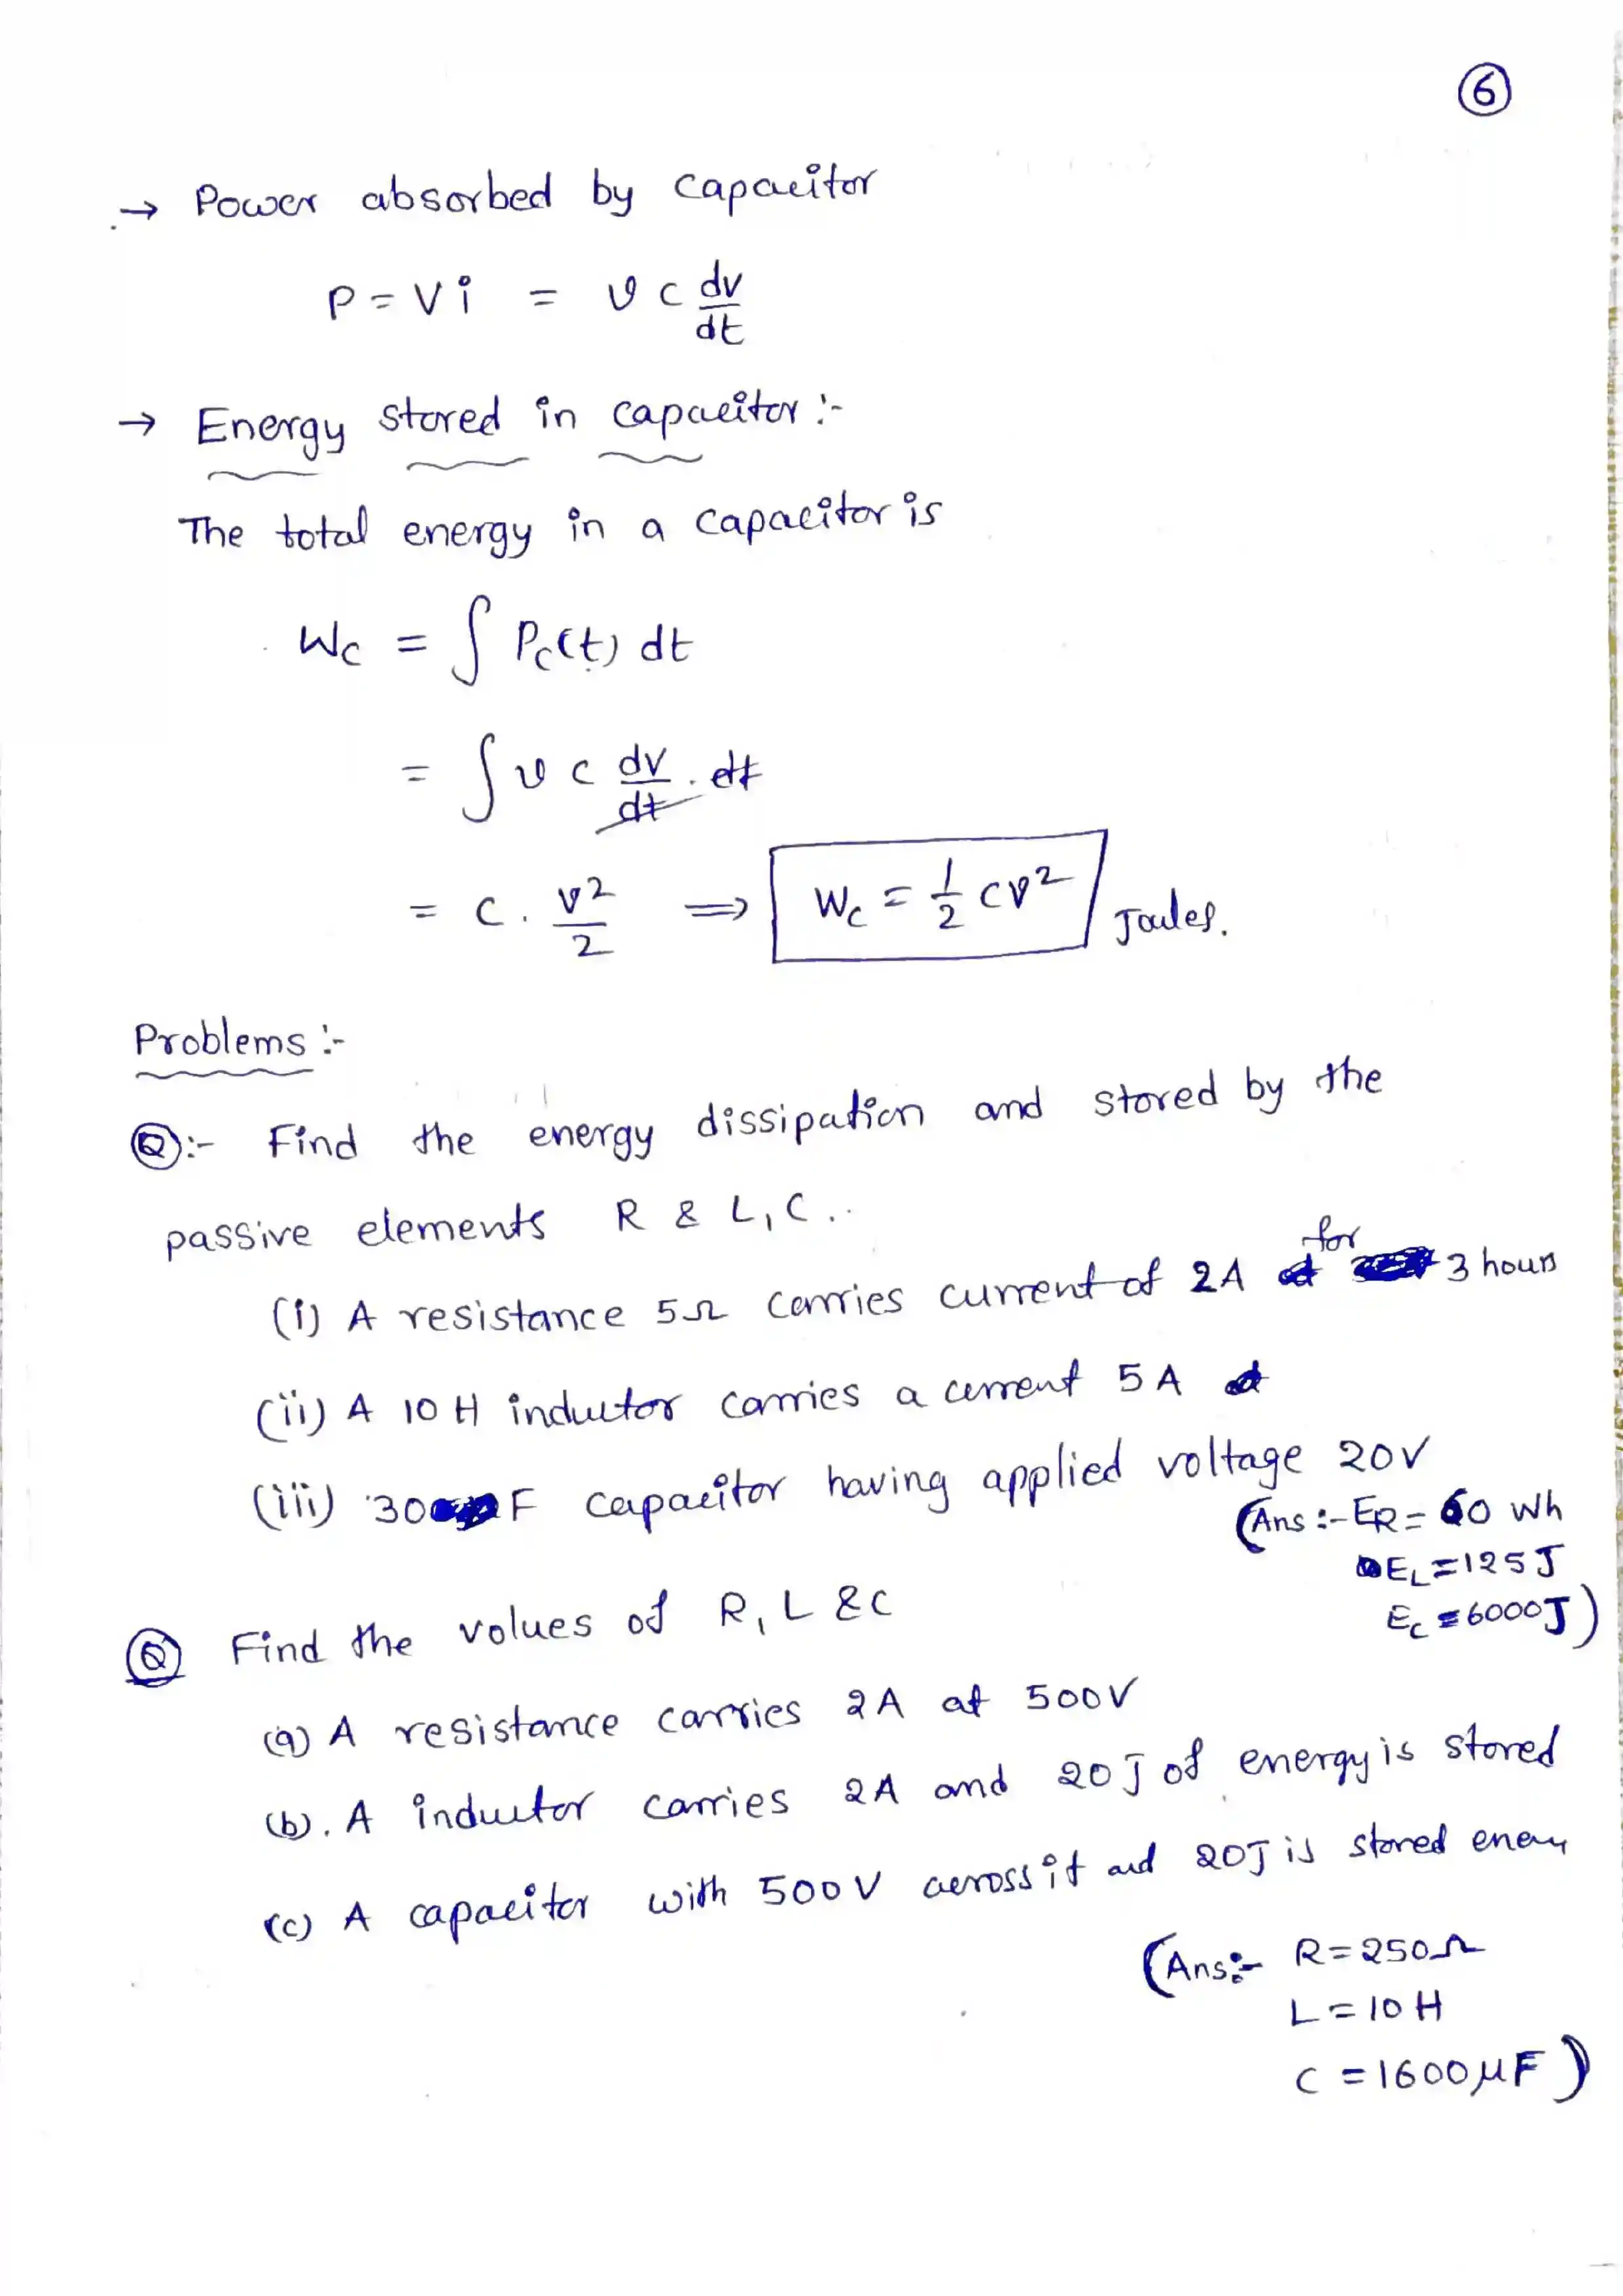 6
→ Power absorbed by capacitor
P = Vi = v c dv/dt
→ Energy stored in capacitor :-
The total energy in a capacitor is
Wc = ∫ Pc(t) dt
= ∫ v c dv/dt . dt
= C . v²/2 ⟹ Wc = 1/2 cv² Joules.
Problems :-
Q :- Find the energy dissipation and stored by the
passive elements R & L, C..
(i) A resistance 5Ω carries current of 2A for 3 hours
(ii) A 10 H inductor carries a current 5 A
(iii) 30 F capacitor having applied voltage 20V
(Ans :- ER = 60 Wh
EL = 125 J
Ec = 6000J)
Q Find the values of R, L & C
(a) A resistance carries 2A at 500V
(b). A inductor carries 2A and 20 J of energy is stored
(c) A capacitor with 500 V across it and 20J is stored
(Ans:- R = 250Ω
L = 10 H
C = 1600μF)